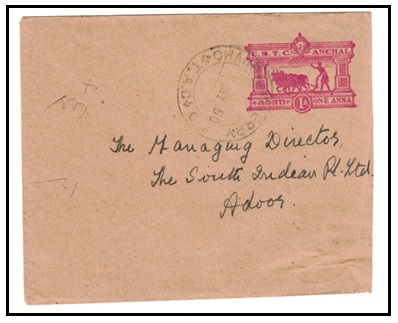 U.S.T.C. ANCHAL
1A ONE ANNA
The Managing Director,
The South Indian Pl. Ltd.
Adoor.